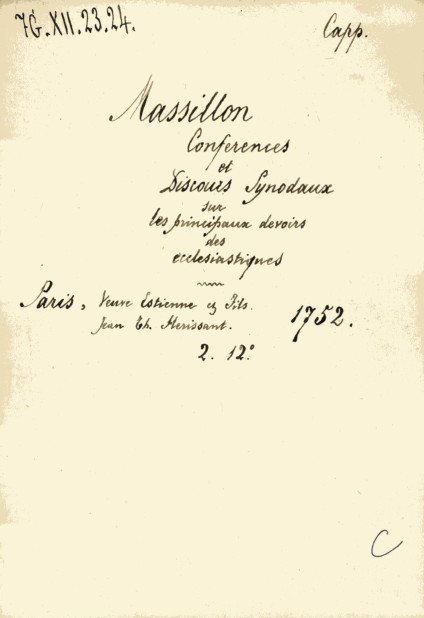 7G.XII.23.24.
Capp.
Massillon
Conferences
et
Discours Synodaux
sur
les principaux devoirs
des
ecclesiastiques
Paris, Veuve Estienne & Fils.
Jean Th. Herissant.
1752.
2. 12º
C